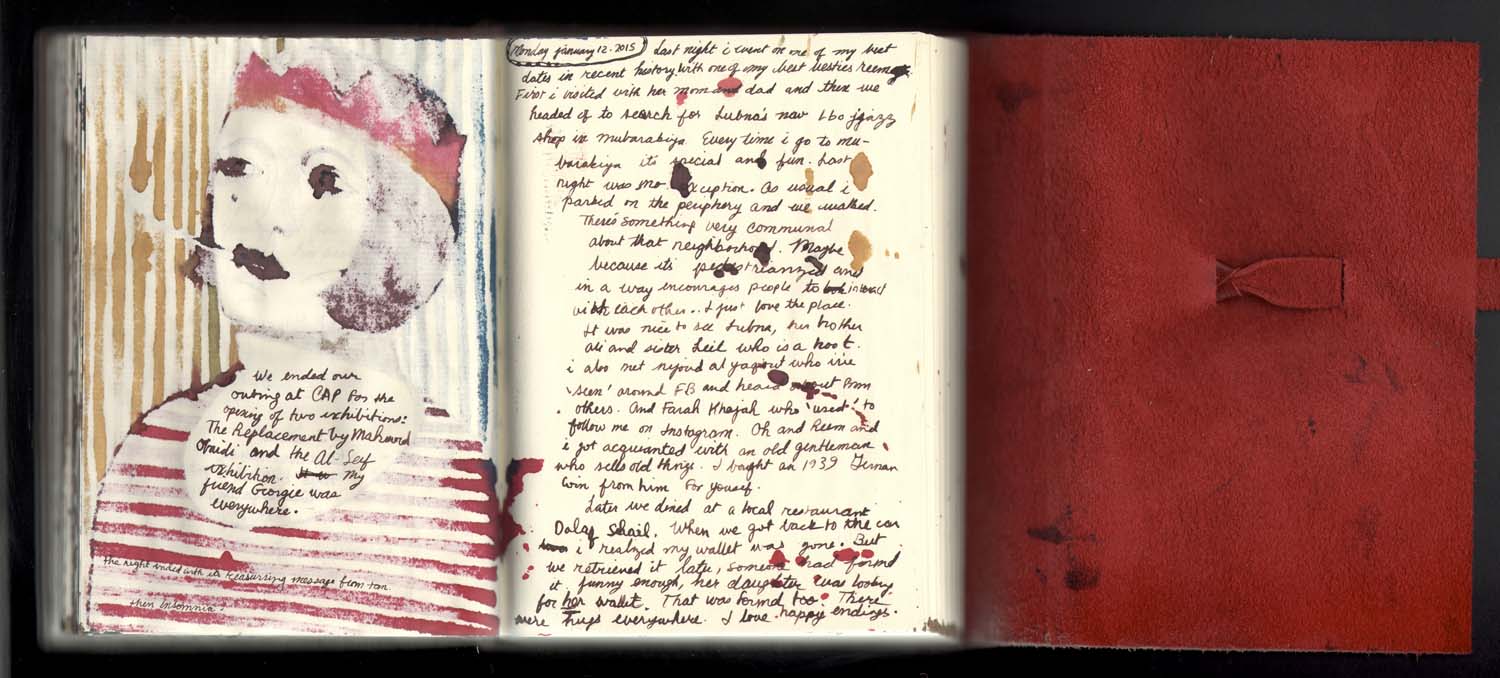 We ended our
outing at CAP for the
opening of two exhibitions:
The Replacement by Mahmoud
Obaidi and the Al-Seif
exhibition. It w My
friend Georgie was
everywhere.
the night ended with its reassurring message from
then insomnia.
Monday january 12. 2015 Last night i went on one of my best
dates in recent history with one of my best besties reem
First i visited with her mom and dad and then we
headed off to search for Lubna's new jazz
shop in mubarakiya. Every time i go to mu-
barakiya its special and fun. Last
night was no exception. As usual i
parked on the periphery and we walked.
There's something very communal
about that neighborhood. Maybe
because its pedestrianized and
in a way encourages people to interact
with each other.. I just love the place.
It was nice to see Lubna, her brother
ali and sister Leil who is a hoot.
i also met nyoud al yagout who ive
'seen' around FB and heard about from
others. And Farah Khajah who 'used' to
follow me on Instagram. Oh and Reem and
i got acquainted with an old gentleman
who sells old things. I bought an 1939 German
coin from him for youself.
Later we dined at a local restaurant
Dalag Shail. When we got back to the car
i realized my wallet was gone. But
we retrieved it later, someone had found
it. funny enough, her daughter was looking
for her wallet. That was found too. There
were hugs everywhere. I love happy endings.